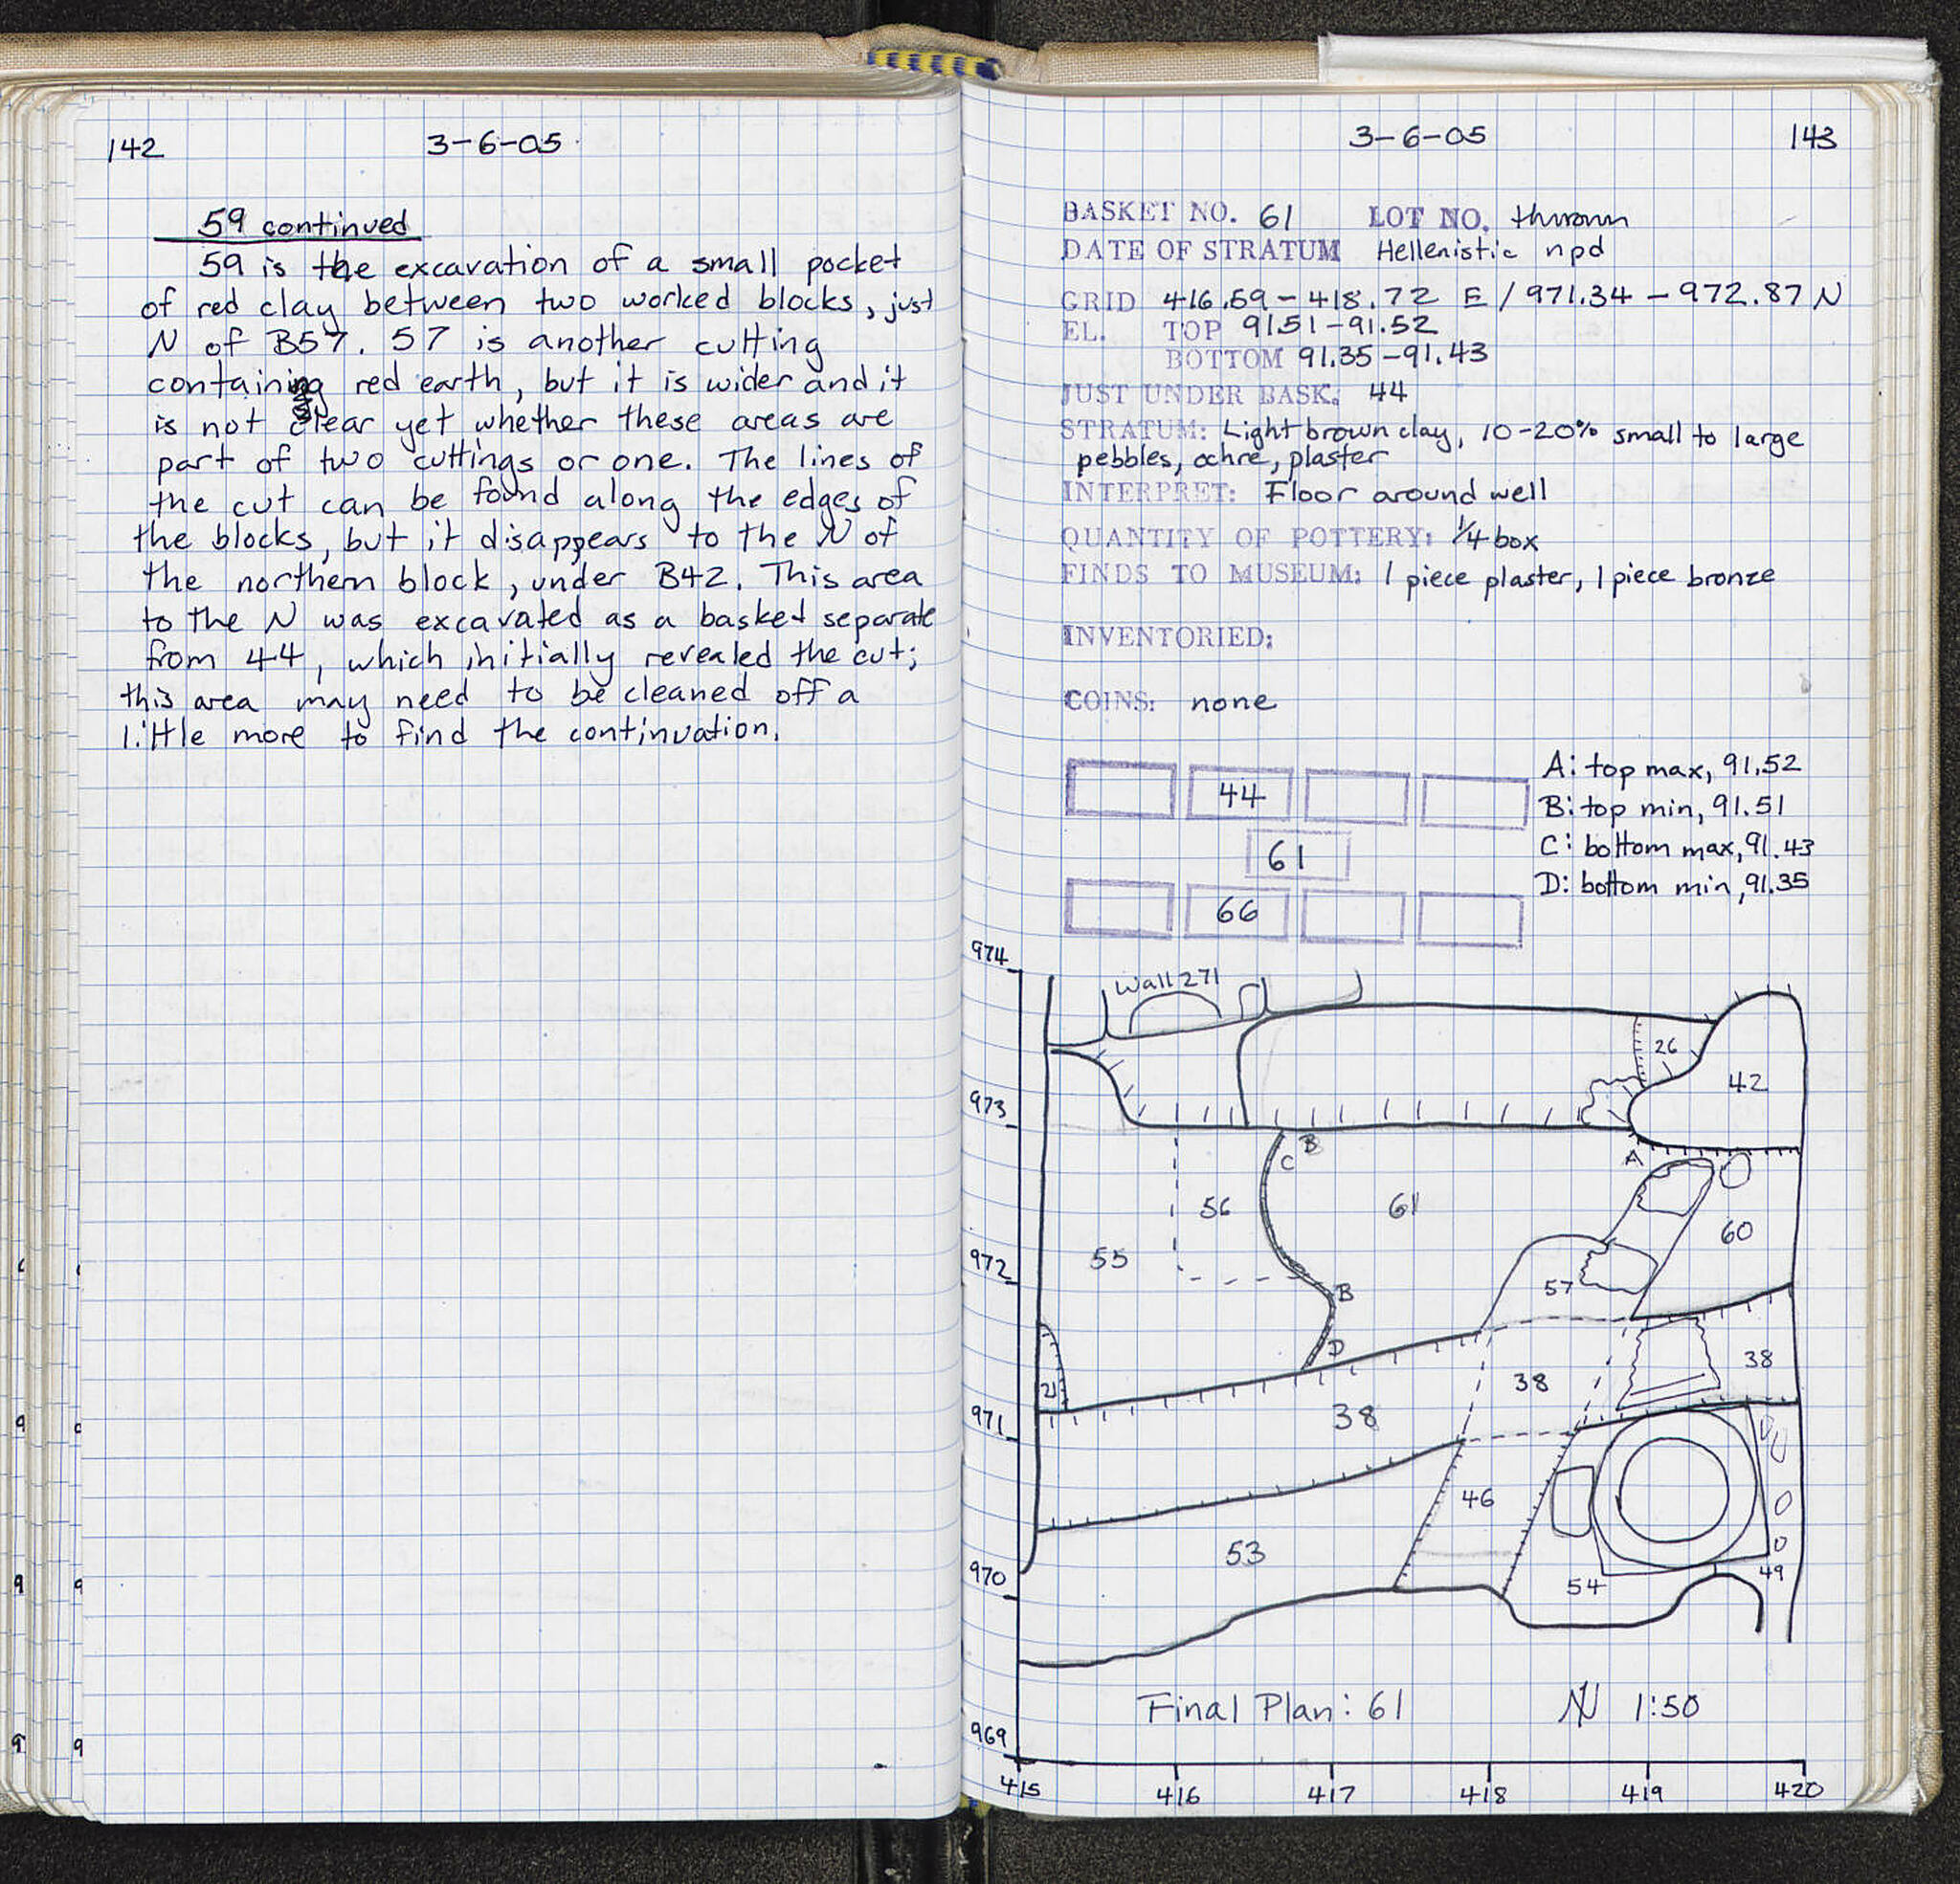 142
3-6-05
59 continued
59 is the excavation of a small pocket
of red clay between two worked blocks, just
N of B57. 57 is another cutting
containing red earth, but it is wider and it
is not clear yet whether these areas are
part of two cuttings or one. The lines of
the cut can be found along the edges of
the blocks, but it disappears to the N of
the northern block, under B42. This area
to the N was excavated as a basket separate
from 44, which initially revealed the cut;
this area may need to be cleaned off a
little more to find the continuation.
3-6-05
143
BASKET NO. 61 LOT NO. thrown
DATE OF STRATUM Hellenistic npd
GRID 416.59-418.72 E / 971.34-972.87 N
EL. TOP 91.51-91.52
BOTTOM 91.35-91.43
JUST UNDER BASK. 44
STRATUM: Light brown clay, 10-20% small to large
pebbles, ochre, plaster
INTERPRET: Floor around well
QUANTITY OF POTTERY: 1/4 box
FINDS TO MUSEUM: 1 piece plaster, 1 piece bronze
INVENTORIED:
COINS: none
44
61
66
A: top max, 91.52
B: top min, 91.51
C: bottom max, 91.43
D: bottom min, 91.35
974
Wall 271
26
42
973
B
C
A
56
61
60
55
972
57
B
D
21
38
38
38
971
46
53
54
49
970
Final Plan: 61 N 1:50
969
415 416 417 418 419 420